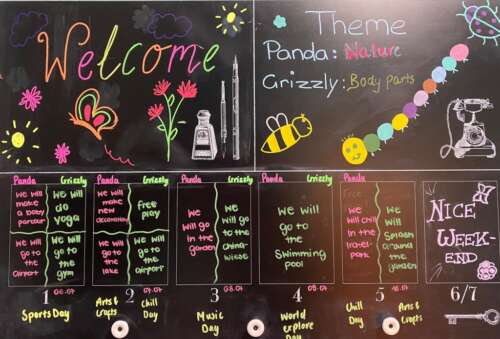 Welcome
Theme
Panda: Nature
Grizzly: Body parts
Panda Grizzly
We will make a baby parlour
We will do yoga
We will go to the airport
We will go to the gym
1 06.07
Sports Day
Panda Grizzly
We will make new decorations
Free play
We will go to the lake
We will go to the airport
2 07.07
Arts & Crafts
Chill Day
Panda Grizzly
We will go in the garden
We will go to the China-wiese
3 08.07
Music Day
Panda Grizzly
We will go to the Swimming pool
4 09.07
World explore Day
Panda Grizzly
Free
We will chill in the
We will Splash around the garden
5 10.07
Chill Day
Arts & Crafts
NICE WEEK-END
6/7